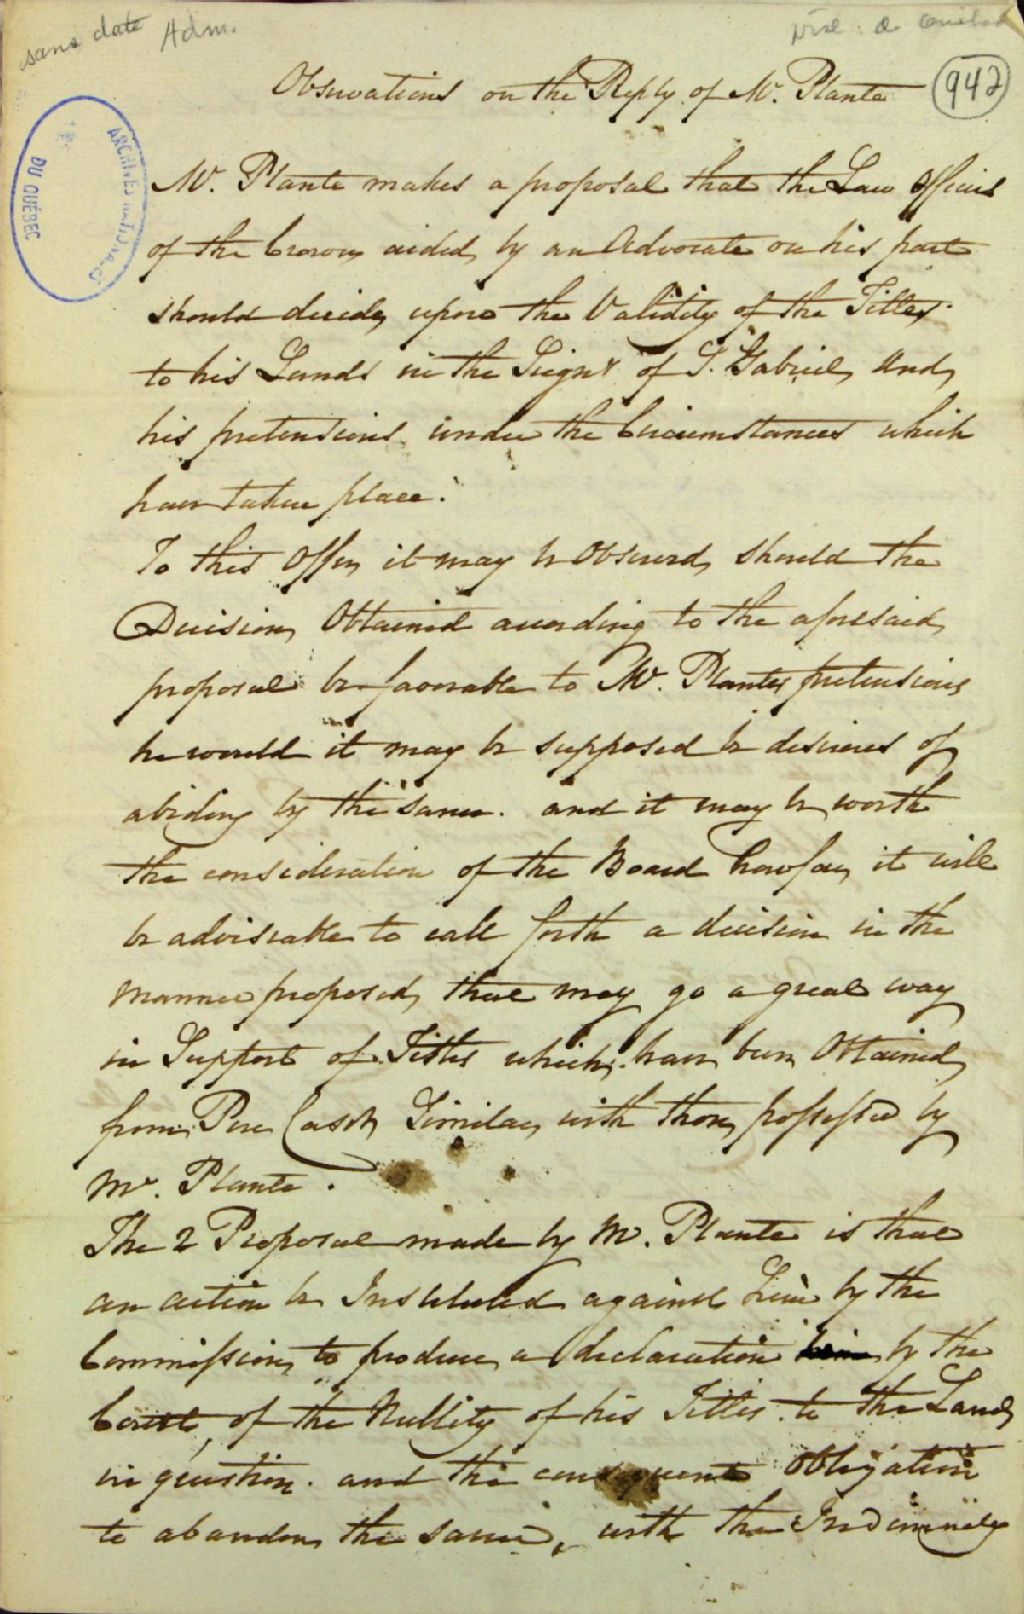 sans date Adm.
942
Observations on the Reply of Mr. Planté
ARCHIVES NATIONALES
DU QUÉBEC
Mr. Planté makes a proposal that the Law Officers
of the Crown aided by an Advocate on his part
should decide upon the Validity of the Titles
to his Lands in the Seigny of S. Gabriel, and
his pretensions under the Circumstances which
have taken place.
To this Offer it may be Observed, should the
Decision Obtained according to the aforesaid
proposal be favorable to Mr. Plantés pretensions
he would it may be supposed be desirous of
abiding by the same. and it may be worth
the consideration of the Board how far it will
be adviseable to call forth a decision in the
Manner proposed, that may go a great way
in Support of Titles which have been Obtained
from Pere Casot, Similar with those possessed by
Mr. Planté.
The 2 Proposal made by Mr. Planté is that
an action be Instituted against him by the
Commission to produce a declaration by the
Court, of the Nullity of his Titles to the Land
in question. and the consequent Obligation
to abandon the same, with the Indemnity